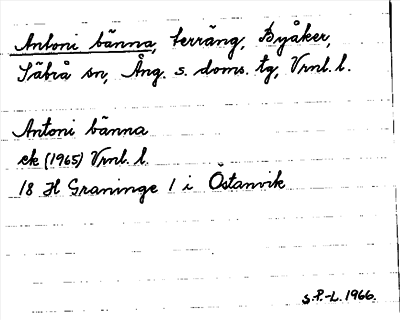 Antoni bänna, terräng, Byåker,
Säbrå sn, Ång. s. doms. tg, Vrnl. l.
Antoni bänna
ek (1965) Vrnl. l.
18 H Graninge 1 i Östanvik
S.P.-L. 1966.